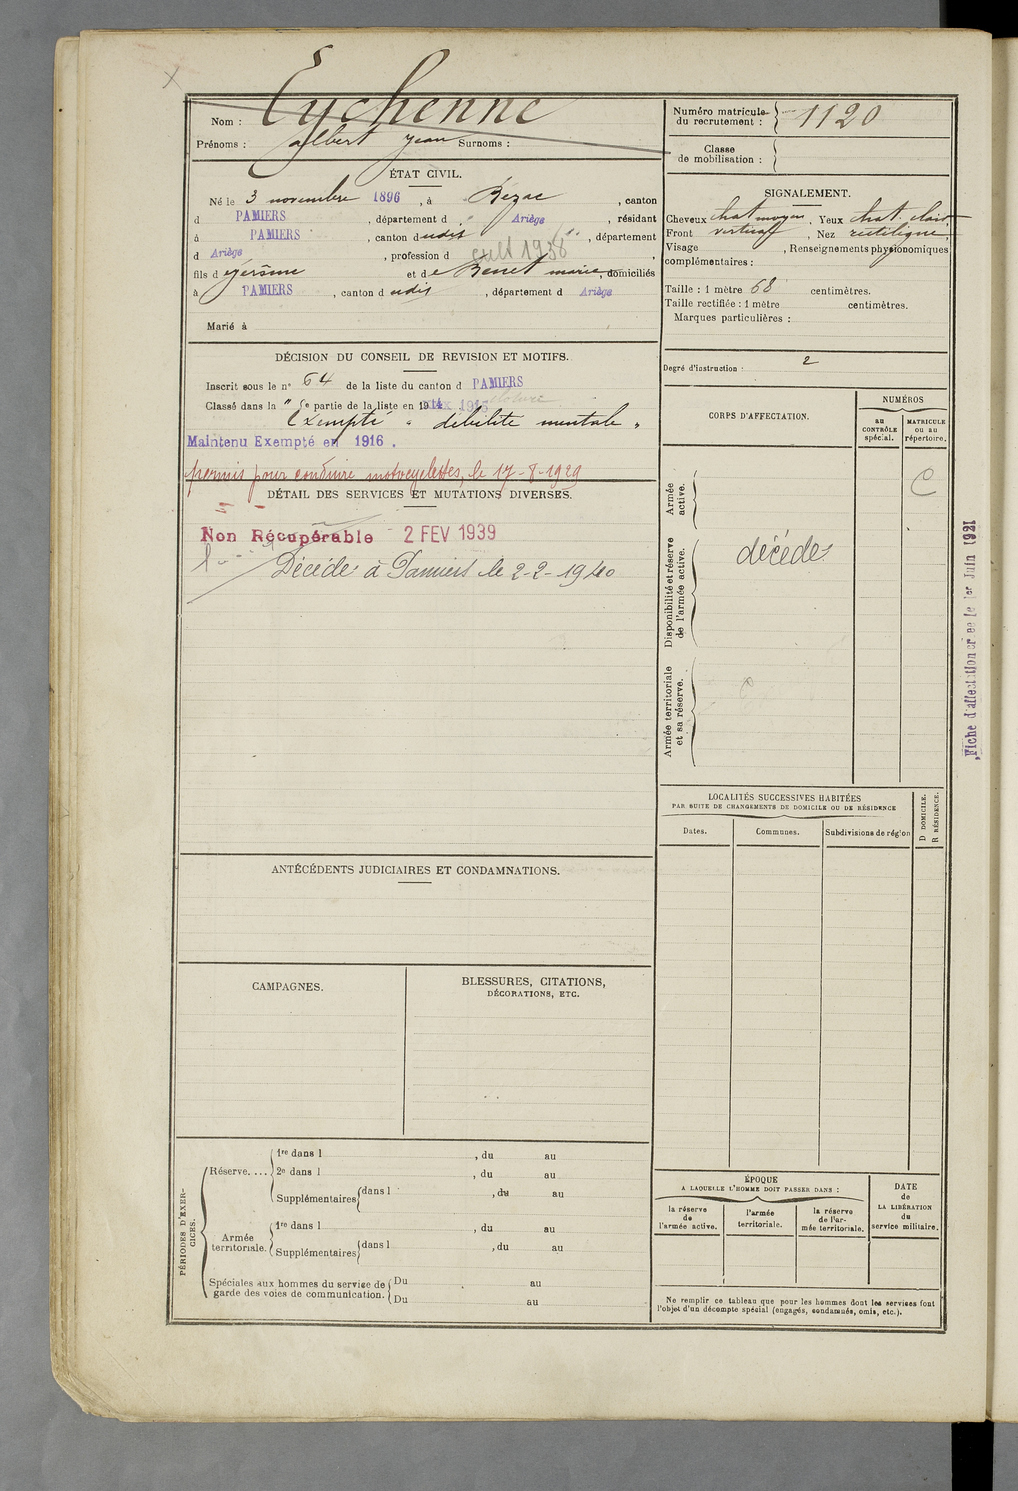 Nom : Eychenne
Prénoms : Albert Jean Surnoms :
Numéro matricule du recrutement : 1120
Classe de mobilisation :
ÉTAT CIVIL.
Né le 3 novembre 1896, à Bézac, canton
d PAMIERS, département d Ariège, résidant
à PAMIERS, canton dudit, département
d Ariège, profession d cult 1938,
fils d et de Benet marie, domiciliés
à PAMIERS, canton dudit, département d Ariège
Marié à
SIGNALEMENT.
Cheveux chat moyen. Yeux chat. clair
Front vertical, Nez rectiligne,
Visage , Renseignements physionomiques
complémentaires :
Taille : 1 mètre 68 centimètres.
Taille rectifiée : 1 mètre centimètres.
Marques particulières :
Degré d'instruction : 2
DÉCISION DU CONSEIL DE REVISION ET MOTIFS.
Inscrit sous le n° 64 de la liste du canton d PAMIERS
Classé dans la 6e partie de la liste en 19
Exempté " débilité mentale "
Maintenu Exempté en 1916.
permis pour conduire motocyclettes, le 17-8-1929
DÉTAIL DES SERVICES ET MUTATIONS DIVERSES.
Non Récupérable 2 FEV 1939
Décédé à Pamiers le 2-2-1940
CORPS D'AFFECTATION.
NUMÉROS
au CONTRÔLE spécial.
MATRICULE ou au répertoire.
Armée active.
C
Disponibilité et réserve de l'armée active.
décédé
Armée territoriale et sa réserve.
Fiche d'affectation créée le 1er Juin 1921
LOCALITÉS SUCCESSIVES HABITÉES
PAR SUITE DE CHANGEMENTS DE DOMICILE OU DE RÉSIDENCE
Dates.
Communes.
Subdivisions de région
D DOMICILE.
R RÉSIDENCE.
ANTÉCÉDENTS JUDICIAIRES ET CONDAMNATIONS.
CAMPAGNES.
BLESSURES, CITATIONS,
DÉCORATIONS, ETC.
PÉRIODES D'EXERCICES.
Réserve....
1re dans l , du au
2e dans l , du au
Supplémentaires dans l , du au
Armée territoriale.
1re dans l , du au
Supplémentaires dans l , du au
Spéciales aux hommes du service de garde des voies de communication.
Du au
Du au
ÉPOQUE
A LAQUELLE L'HOMME DOIT PASSER DANS :
la réserve de l'armée active.
l'armée territoriale.
la réserve de l'armée territoriale.
DATE de LA LIBÉRATION du service militaire.
Ne remplir ce tableau que pour les hommes dont les services font
l'objet d'un décompte spécial (engagés, condamnés, omis, etc.).